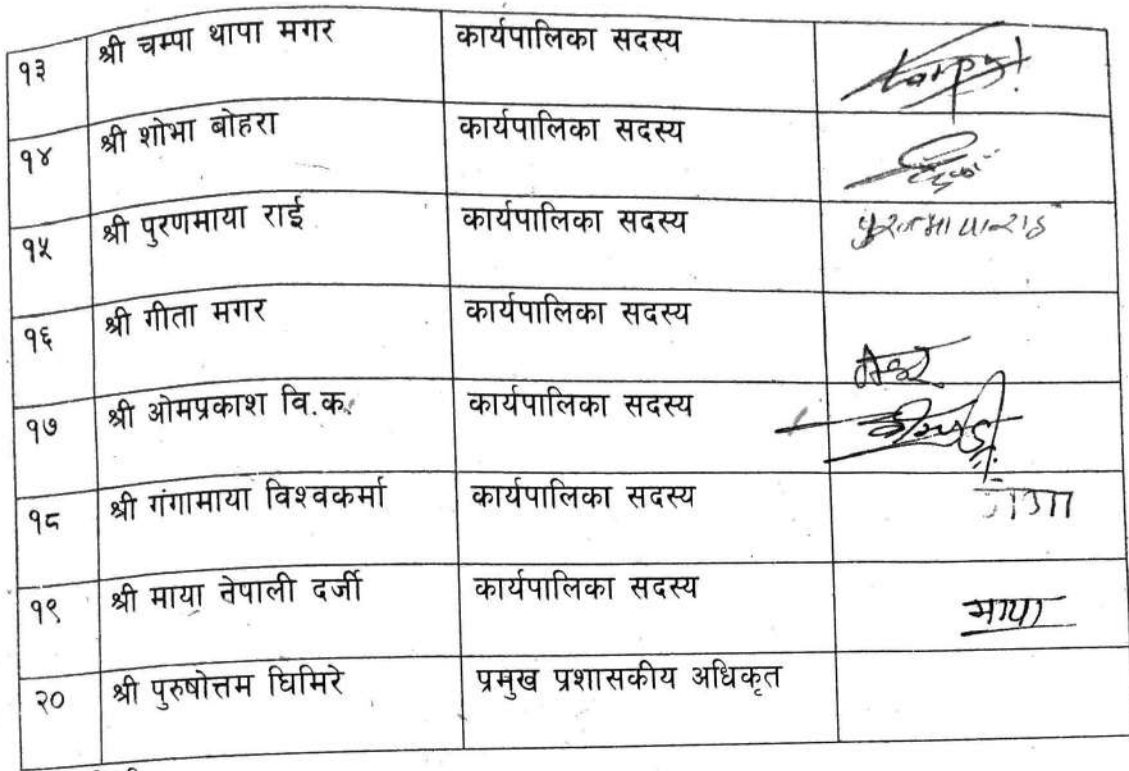 १३ श्री चम्पा थापा मगर कार्यपालिका सदस्य
१४ श्री शोभा बोहरा कार्यपालिका सदस्य
१५ श्री पुरणमाया राई कार्यपालिका सदस्य पुरणमाया राई
१६ श्री गीता मगर कार्यपालिका सदस्य
१७ श्री ओमप्रकाश वि.क. कार्यपालिका सदस्य
१८ श्री गंगामाया विश्वकर्मा कार्यपालिका सदस्य
१९ श्री माया नेपाली दर्जी कार्यपालिका सदस्य माया
२० श्री पुरुषोत्तम घिमिरे प्रमुख प्रशासकीय अधिकृत